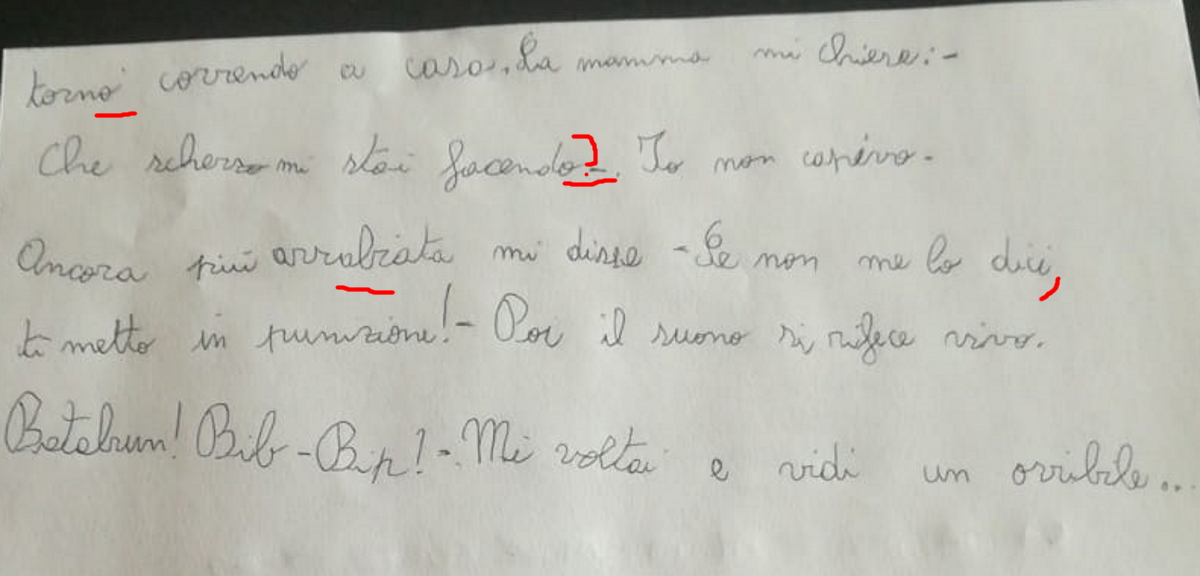 tornò correndo a casa. La mamma mi chiese: -
Che scherzo mi stai facendo? -. Io non capivo.
Ancora più arrabiata mi disse - Se non me lo dici,
ti metto in punizione! - Poi il suono si rifece vivo.
Betebum! Bib - Bip! -. Mi voltai e vidi un orribile...